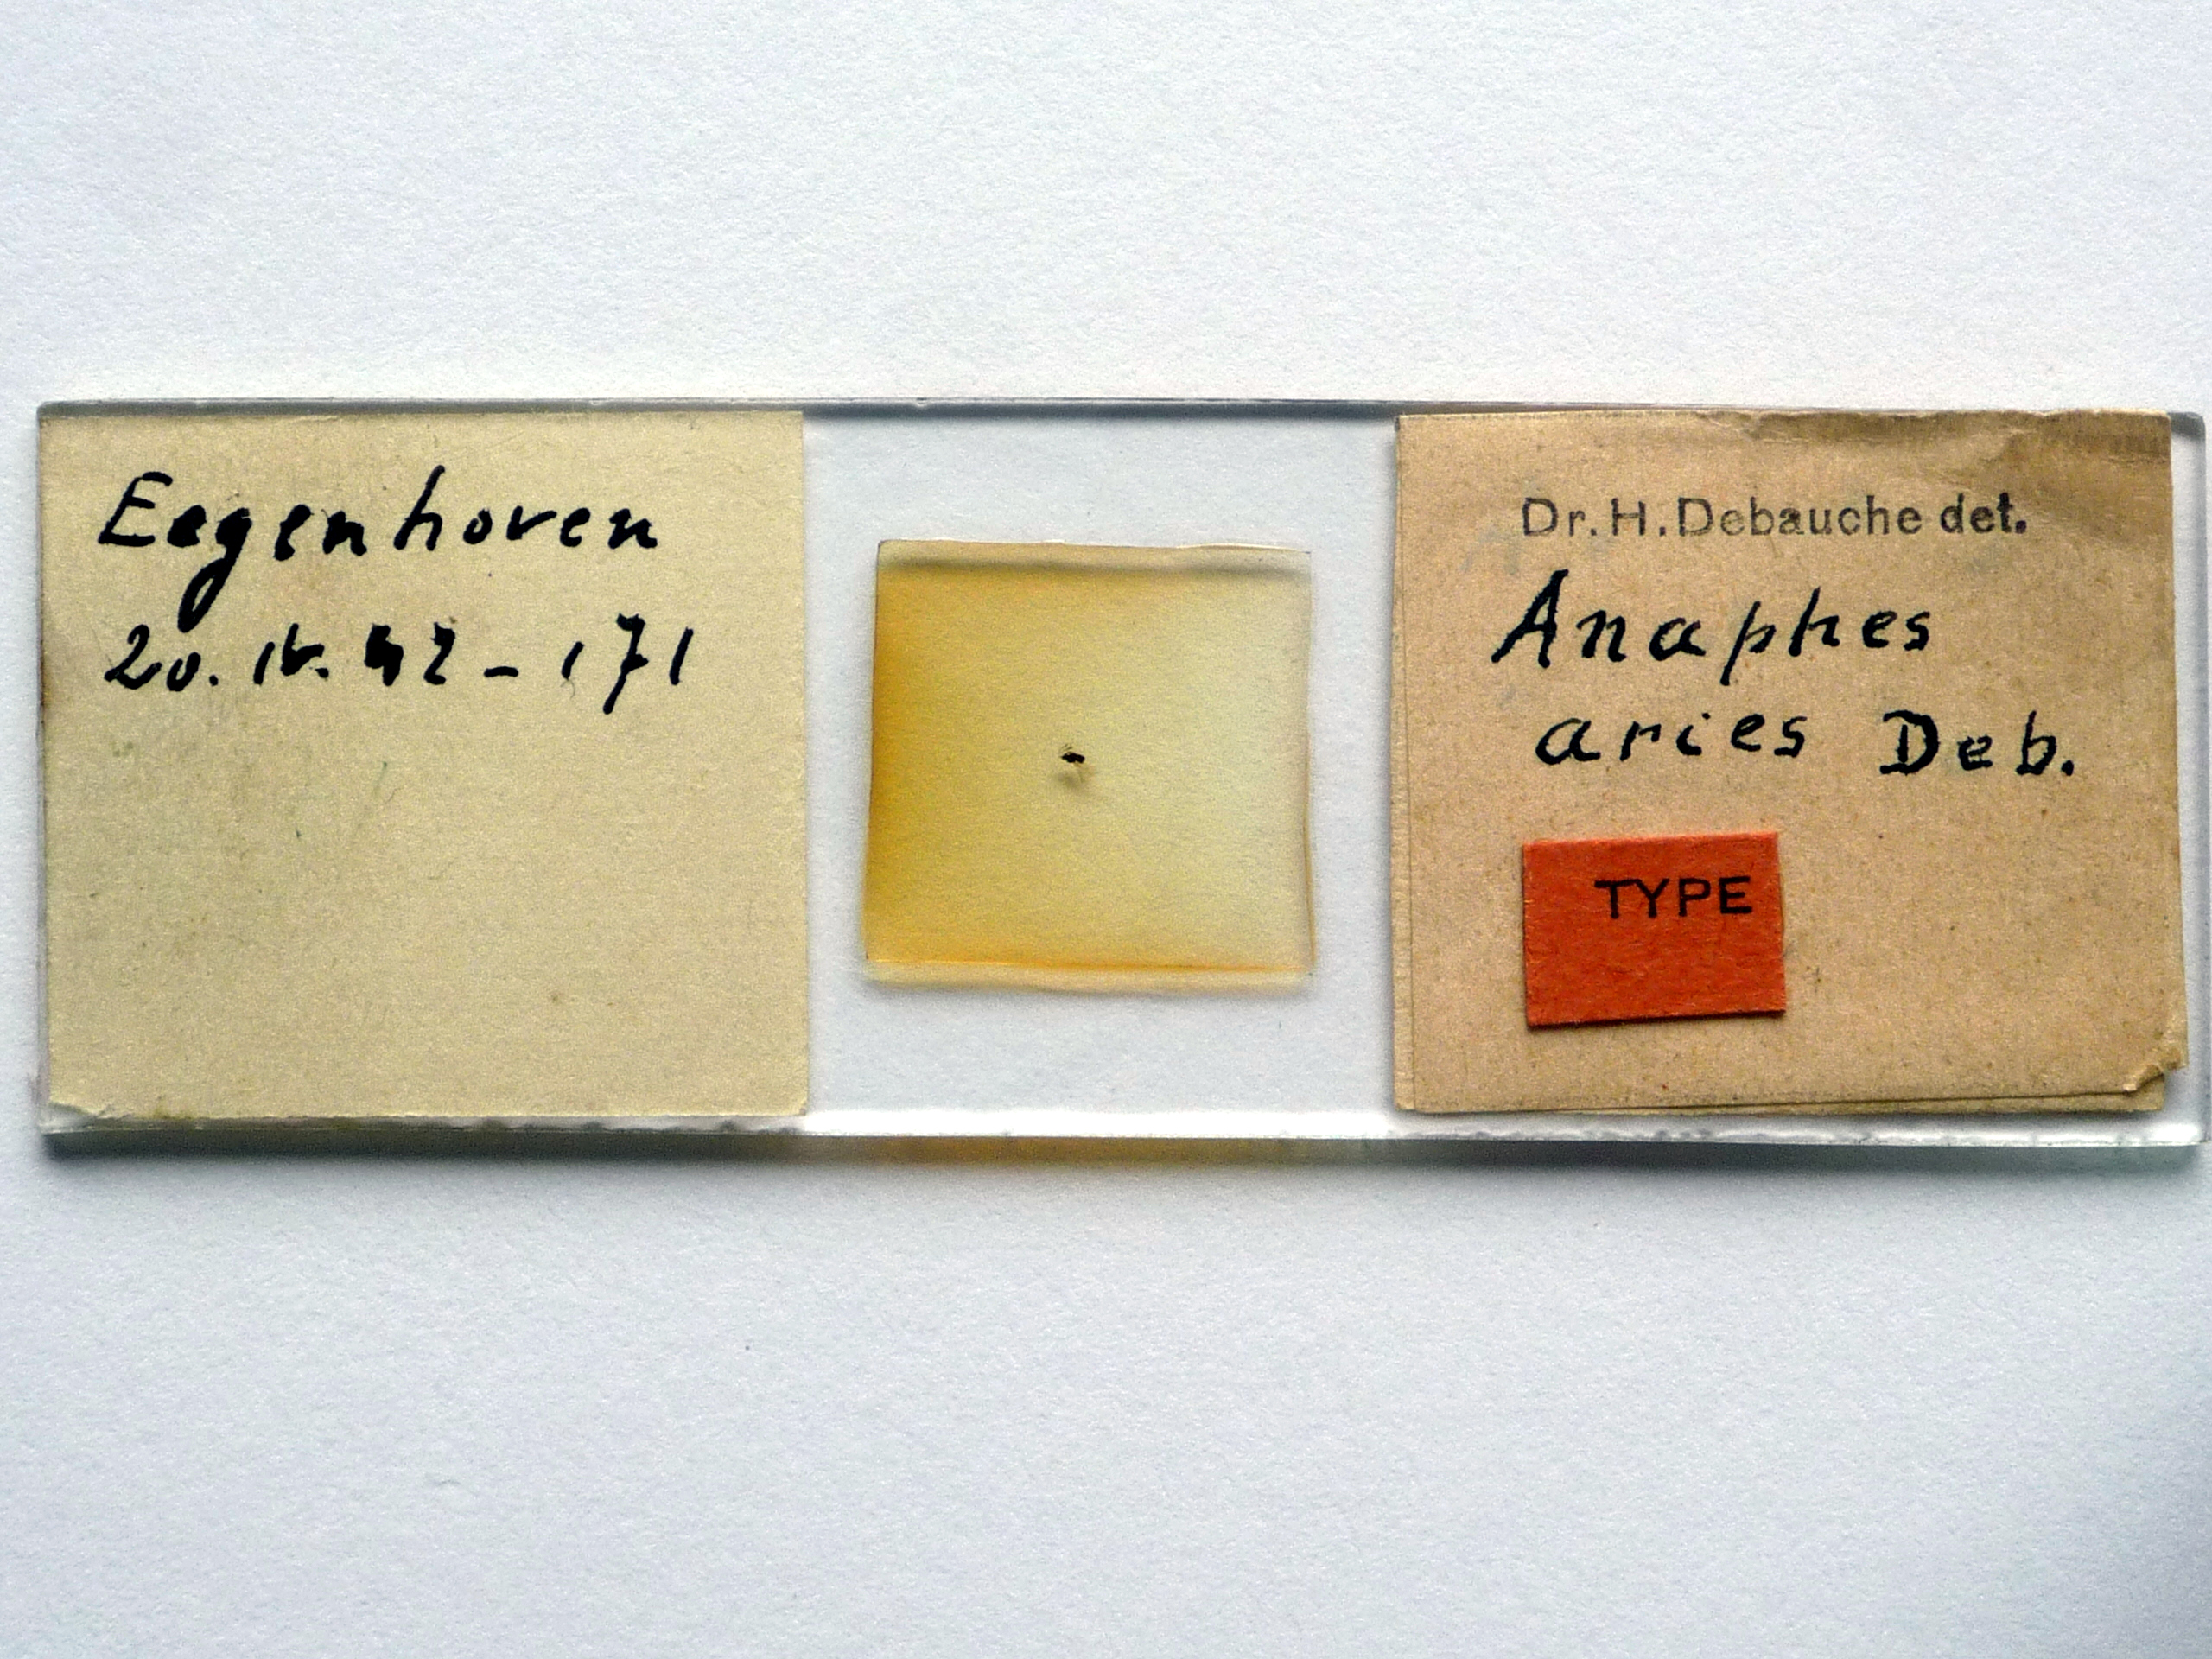 Eegenhoven
20. IV. 42 - 171
Dr. H. Debauche det.
Anaphes
aries Deb.
TYPE